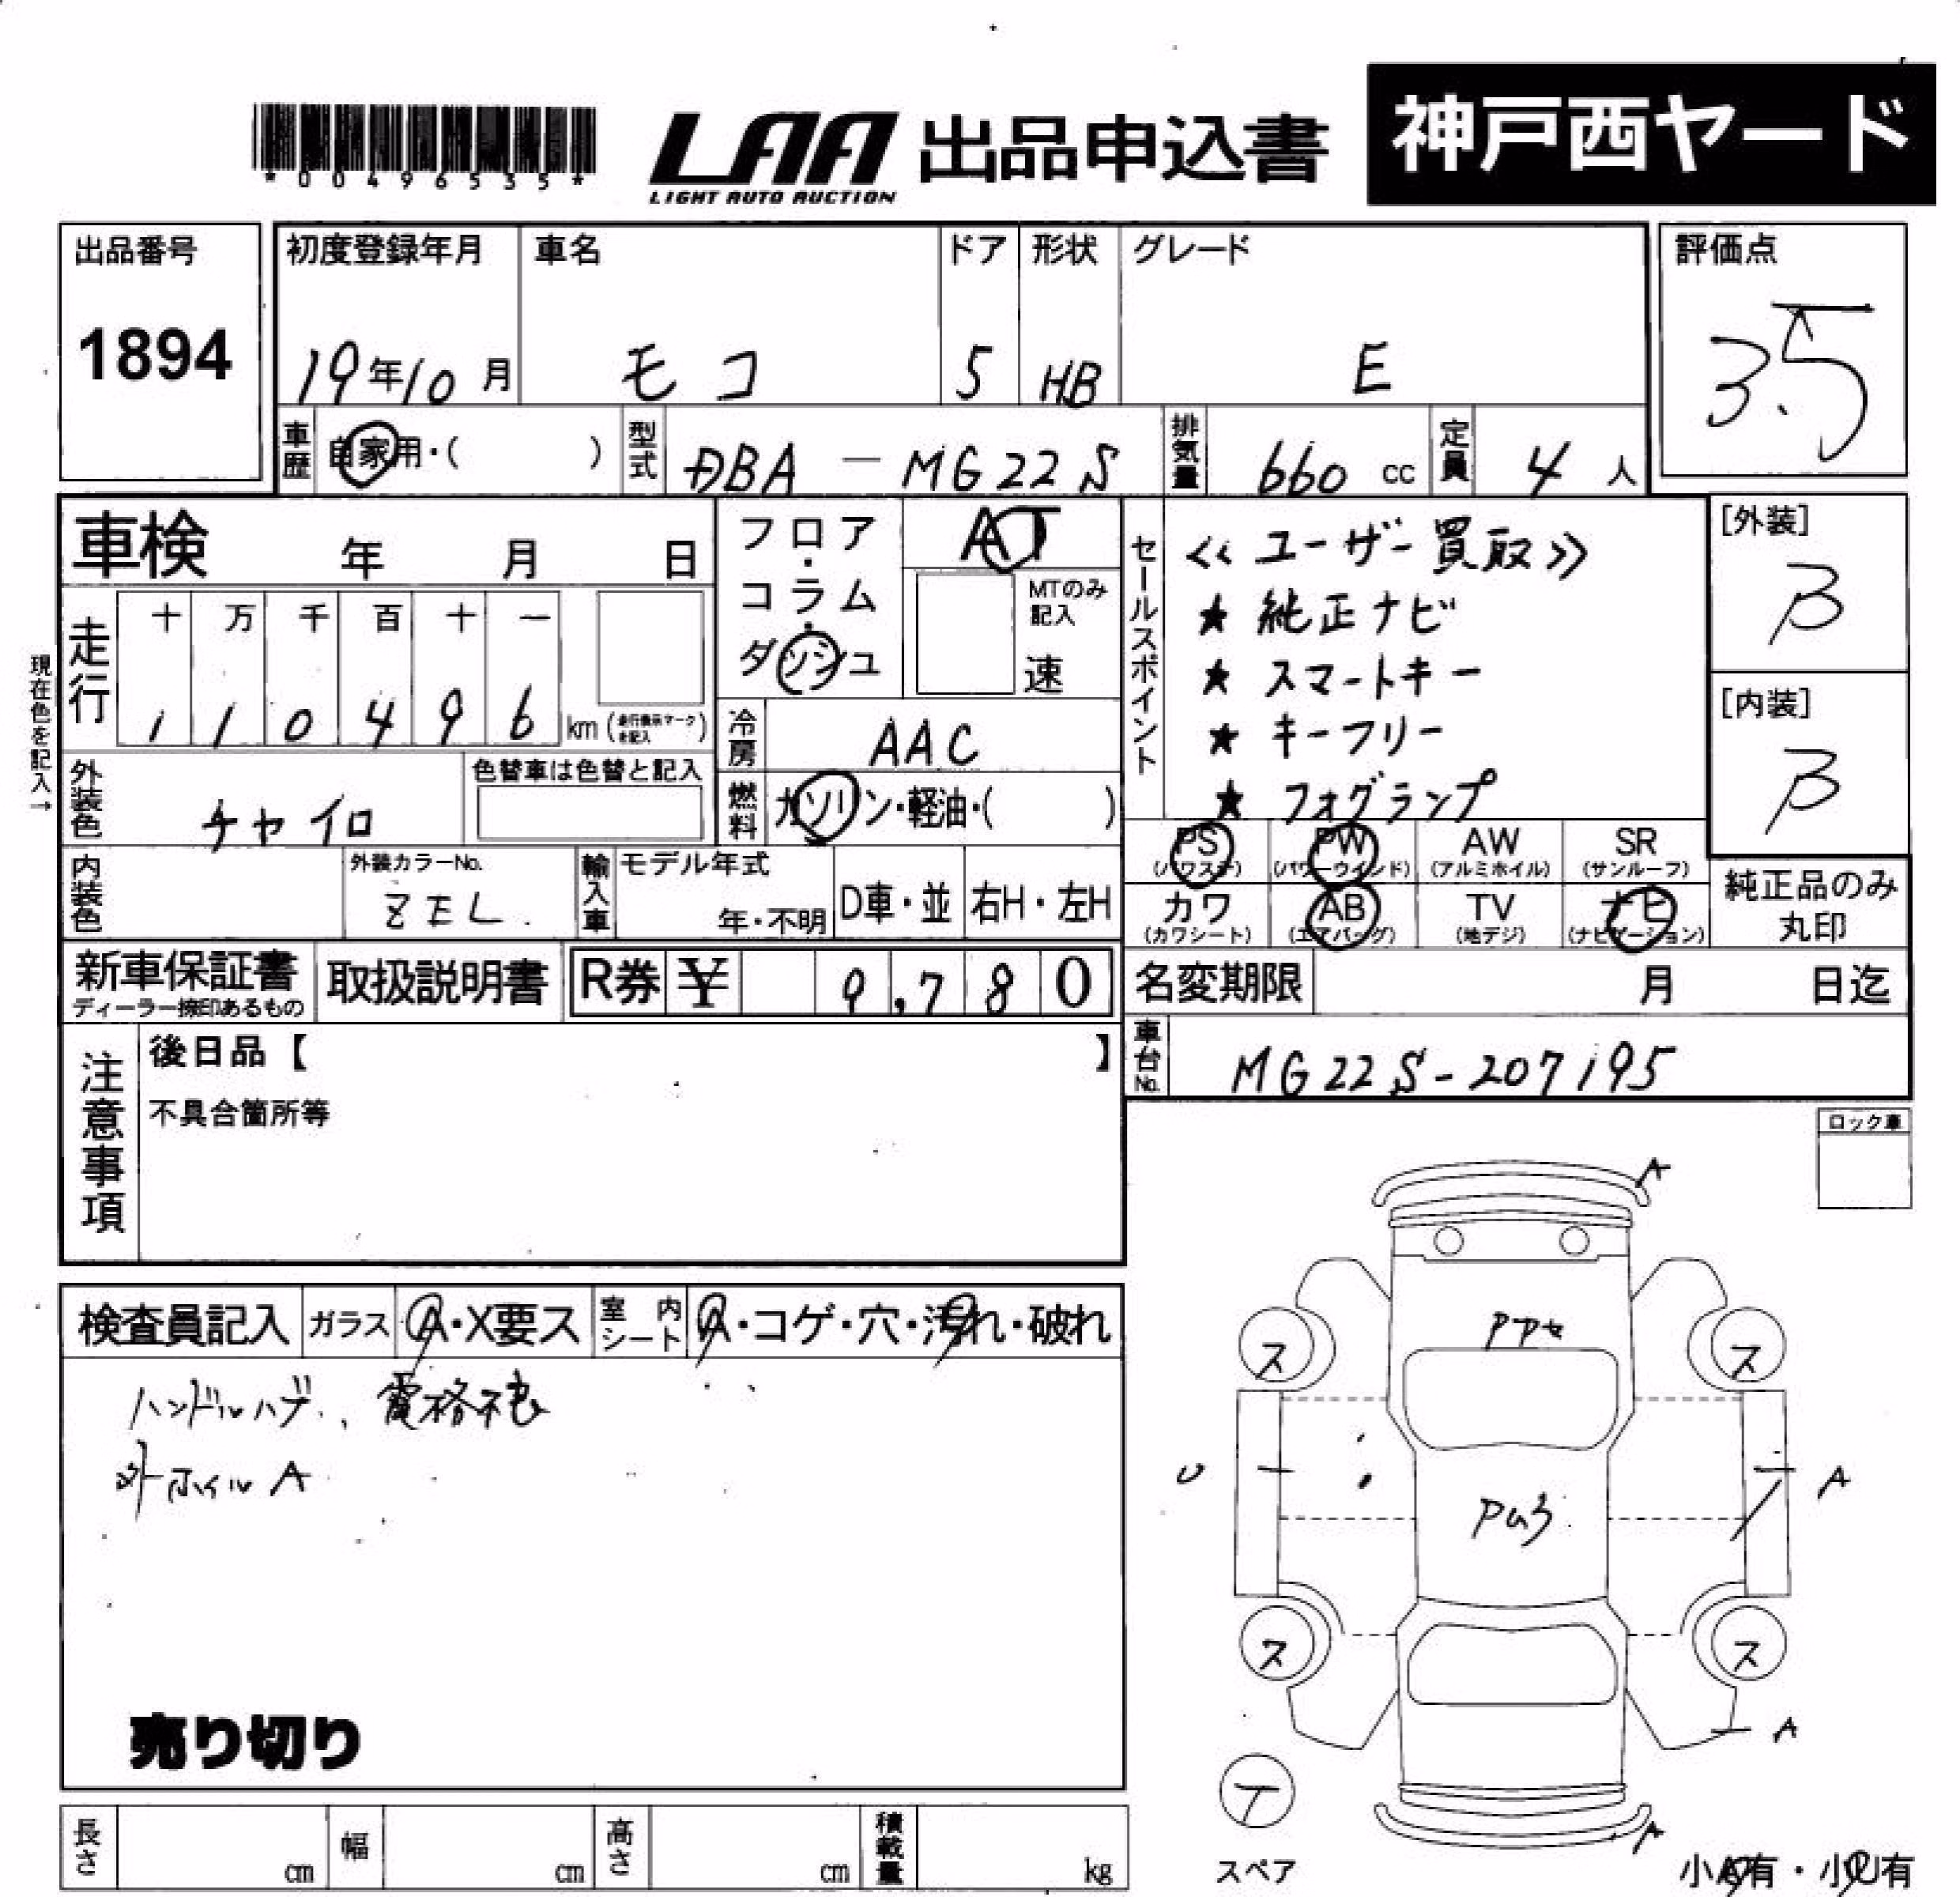 *00496535*
LAA 出品申込書
LIGHT AUTO AUCTION
神戸西ヤード
出品番号
1894
初度登録年月
19年10月
車名
モコ
ドア
5
形状
HB
グレード
E
評価点
3.5
車歴
自家用・( )
型式
DBA-MG22S
排気量
660 cc
定員
4 人
車検 年 月 日
フロア・コラム・ダッシュ
AT
MTのみ記入
速
セールスポイント
≪ユーザー買取≫
★ 純正ナビ
★ スマートキー
★ キーフリー
★ フォグランプ
[外装]
B
[内装]
B
現在色を記入→
走行
十 万 千 百 十 一
1 1 0 4 9 6
km (走行換示マークを記入)
冷房
AAC
燃料
ガソリン・軽油・( )
外装色
チャイロ
色替車は色替と記入
内装色
外装カラーNo.
ZEL.
輸入車
モデル年式
年・不明
D車・並
右H・左H
PS
(パワステ)
PW
(パワーウインド)
AW
(アルミホイル)
SR
(サンルーフ)
カワ
(カワシート)
AB
(エアバッグ)
TV
(地デジ)
ナビ
(ナビゲーション)
純正品のみ
丸印
新車保証書
ディーラー捺印あるもの
取扱説明書
R券 ¥ 9,780
名変期限 月 日迄
車台No.
MG22S-207195
注意事項
後日品【 】
不具合箇所等
ロック車
検査員記入
ガラス
A・X要ス
室内シート
A・コゲ・穴・汚れ・破れ
ハンドルハゲ、電格不良
外ホイルA
売り切り
A
ス
ス
U
A
ス
ス
A
T
スペア
小A有・小U有
長さ cm
幅 cm
高さ cm
積載量 kg